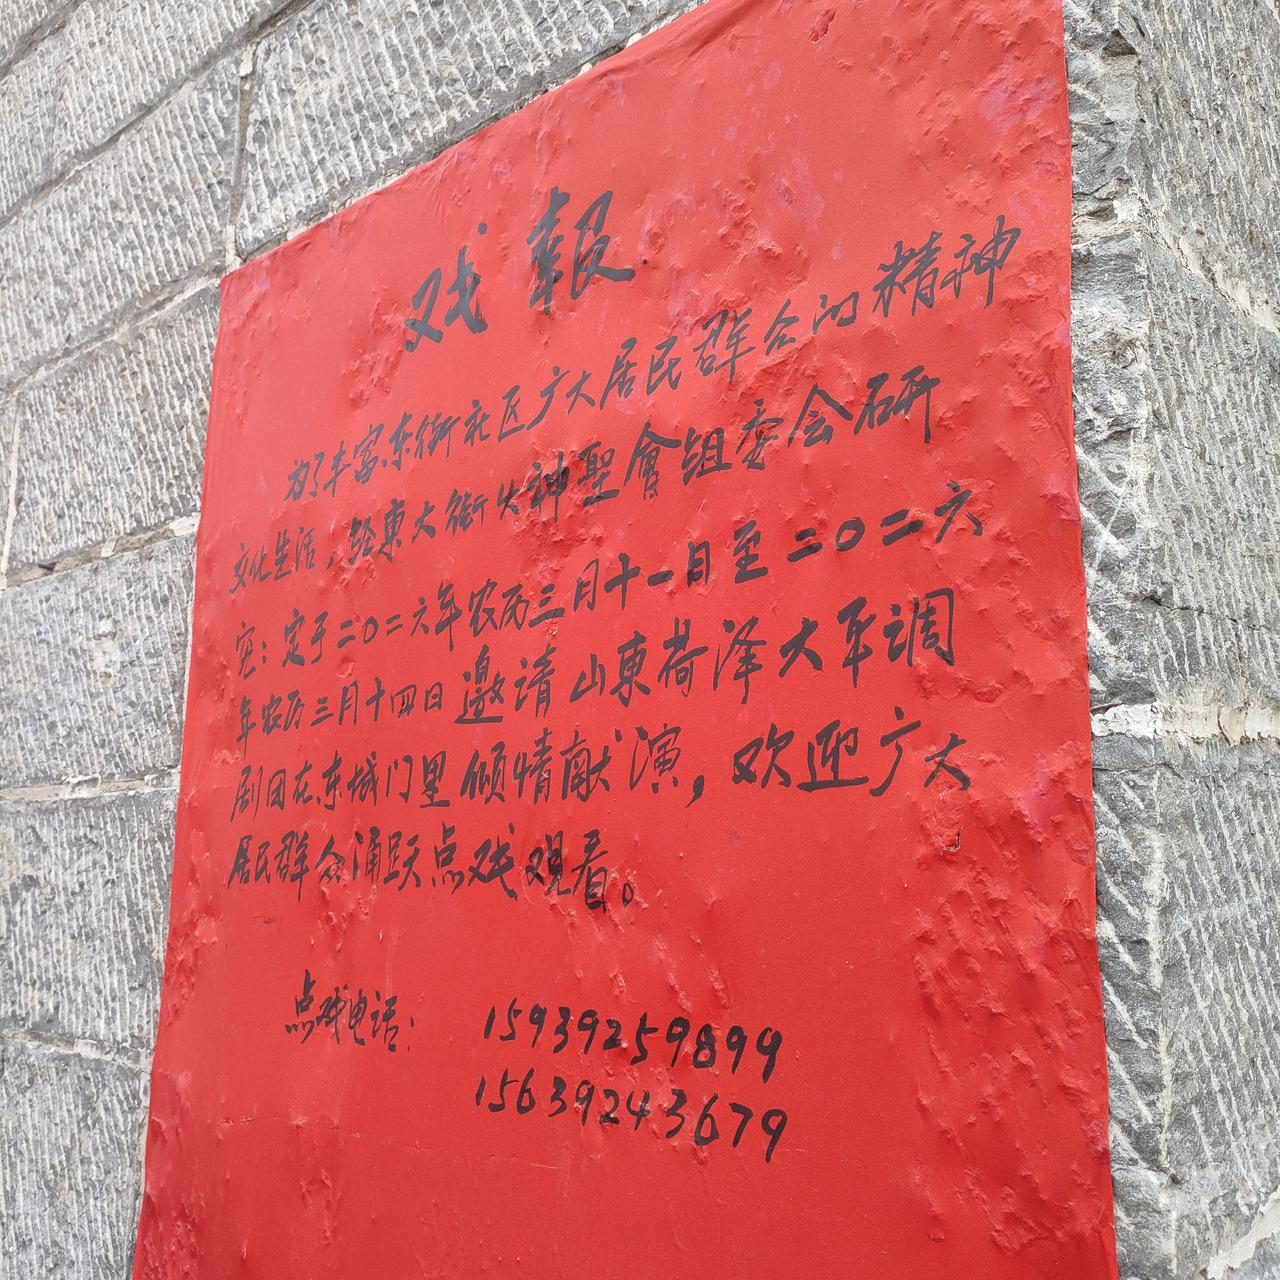 戏報
为了丰富东街社区广大居民群众的精神
文化生活，经東大街火神聖會组委会研
究：定于二〇二六年农历三月十一日至二〇二六
年农历三月十四日邀请山東荷泽大平调
剧团在东城门里倾情献演，欢迎广大
居民群众涌跃点戏观看。
点戏电话：15939259899
15639243679